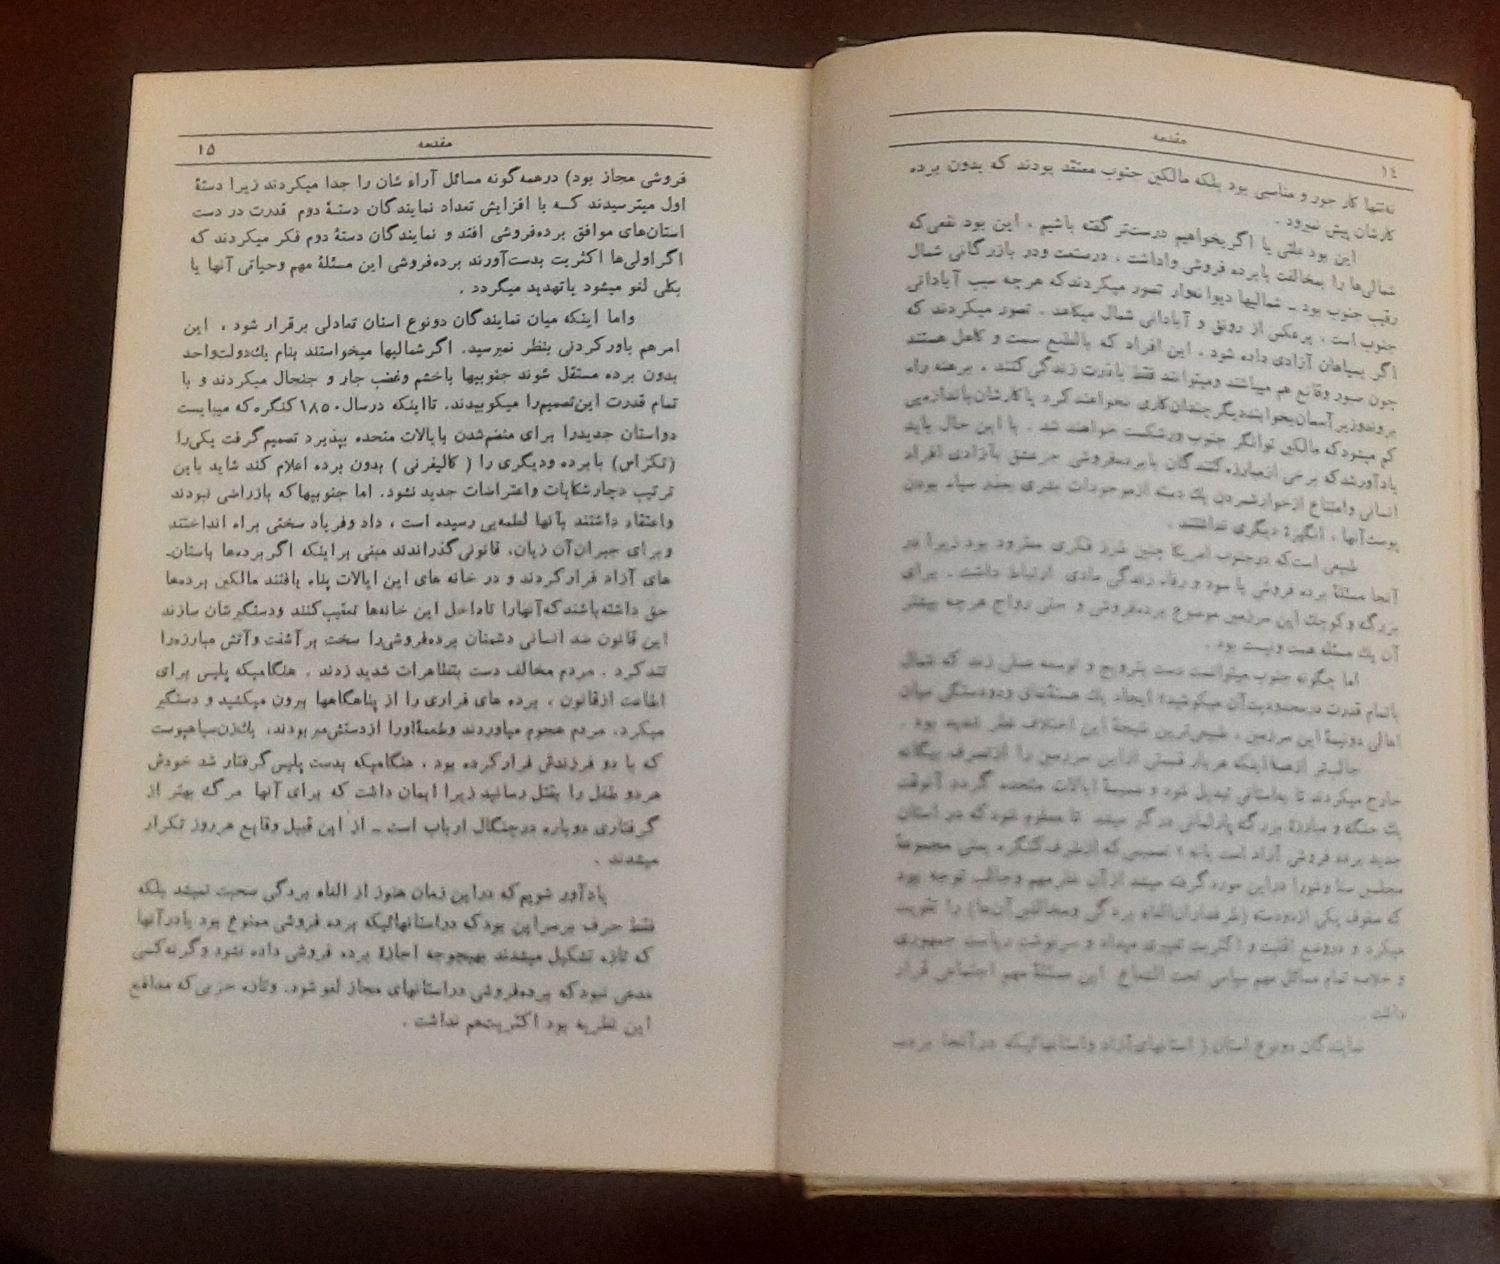 ۱۴
مقدمه
نه‌تنها کار جور و مناسبی بود بلکه مالکین جنوب معتقد بودند که بدون برده
کارشان پیش نمیرود .
این بود علتی یا اگر بخواهیم درست‌تر گفته باشیم ، این بود نفعی‌که
شمالی‌ها را بمخالفت بابرده فروشی واداشت ، درصنعت ودر بازرگانی شمال
رقیب جنوب بود ـ شمالیها دیوانه‌وار تصور میکردندکه هرچه سبب آبادانی
جنوب است ، برعکس از رونق و آبادانی شمال میکاهد . تصور میکردند که
اگر بسیاهان آزادی داده شود . این افراد که بالطبع سست و کاهل هستند
چون صبور وقانع هم میباشند ومیتوانند فقط باذرت زندگی‌کنند . برهنه راه
بروندوزیرآسمان‌بخوابنددیگرچندان‌کاری نخواهندکرد یاکارشان‌باندازه‌یی
کم میشودکه مالکین توانگر جنوب ورشکست خواهند شد . با این حال باید
یادآورشدکه برخی ازمبارزه‌کنندگان بابرده‌فروشی جزعشق بآزادی افراد
انسانی وامتناع ازخوارشمردن یك دسته ازموجودات بشری بعذر سیاه بودن
پوست‌آنها ، انگیزهٔ دیگری نداشتند .
طبیعی است‌که درجنوب امریکا چنین طرز فکری مطرود بود زیرا در
آنجا مسئلهٔ برده فروشی با سود و رفاه زندگی مادی ارتباط داشت . برای
بزرگ وکوچك این سرزمین موضوع برده‌فروشی و حتی رواج هرچه بیشتر
آن یك مسئله هست ونیست بود .
اما چگونه جنوب میتوانست دست بترویج و توسعه عملی زند که شمال
باتمام قدرت درمحدودیت‌آن میکوشید؛ ایجاد یك ودودستگی میان
اهالی دونیمهٔ این سرزمین ، طبیعی‌ترین نتیجهٔ این اختلاف نظر شدید بود .
جالب‌تر ازهمه‌اینکه هربار قسمتی ازاین سرزمین را ازتصرف بیگانه
خارج میکردند تا به‌استانی تبدیل شود و ضمیمهٔ ایالات متحده گردد آنوقت
یك جنگ و مبارزهٔ بزرگ پارلمانی درگیر میشد تا معلوم شودکه در استان
جدید برده فروشی آزاد است یانه ؛ تصمیمی‌که ازطرف‌کنگره یعنی مجموعهٔ
مجلس سنا وشورا دراین مورد گرفته میشد ازآن نظرمهم وجالب توجه بود
که صفوف یکی ازدودسته (طرفداران‌الغاء بردگی ومخالفین‌آن‌ها) را تقویت
میکرد و دروضع اقلیت و اکثریت تغییری میداد و سرنوشت ریاست جمهوری
و خلاصه تمام مسائل مهم سیاسی تحت الشعاع این مسئلهٔ مهم اجتماعی قرار
داشت
نمایندگان دونوع استان ( استانهای‌آزاد واستانهائیکه درآنجا برده
۱۵
مقدمه
فروشی مجاز بود) درهمه‌گونه مسائل آراء شان را جدا میکردند زیرا دستهٔ
اول میترسیدند کــه با افزایش تعداد نمایندگان دستـهٔ دوم قدرت در دست
استان‌های موافق برده‌فروشی افتد و نمایندگان دستهٔ دوم فکر میکردند که
اگراولی‌ها اکثریت بدست‌آورند برده‌فروشی این مسئلهٔ مهم وحیاتی آنها یا
بکلی لغو میشود یاتهدید میگردد .
واما اینکه میان نمایندگان دونوع استان تعادلی برقرار شود ، این
امرهم باورکردنی بنظر نمیرسید. اگرشمالیها میخواستند بنام یك‌دولت‌واحد
بدون برده مستقل شوند جنوبیها باخشم وغضب جار و جنجال میکردند و با
تمام قدرت این‌تصمیم‌را میکوبیدند. تااینکه درسال۱۸۵۰کنگره‌که میبایست
دواستان جدیدرا برای منضم‌شدن بایالات متحده بپذیرد تصمیم‌گرفت یکی‌را
(تکزاس) بابرده ودیگری را ( کالیفرنی ) بدون برده اعلام کند شاید باین
ترتیب دچارشکایات واعتراضات جدید نشود. اما جنوبیهاکه باز‌راضی نبودند
واعتقاد داشتند بآنها لطمه‌یی رسیده است ، داد وفریاد سختی براه انداختند
وبرای جبران‌آن زیان، قانونی گذراندند مبنی براینکه اگربرده‌ها باستان-
های آزاد فرارکردند و در خانه های این ایالات پناه یافتند مالکین برده‌ها
حق داشته‌باشندکه‌آنهارا تاداخل این خانه‌ها تعقیب‌کنند ودستگیرشان سازند
این قانون ضد انسانی دشمنان برده‌فروشی‌را سخت برآشفت وآتش مبارزه‌را
تندکرد . مردم مخالف دست بتظاهرات شدید زدند . هنگامیکه پلیس برای
اطاعت ازقانون ، برده های فراری را از پناهگاهها بیرون میکشید و دستگیر
میکرد، مردم هجوم میاوردند وطعمهٔ‌اورا ازدستش‌میربودند، یك‌زن‌سیاهپوست
که با دو فرزندش فرارکرده بود ، هنگامیکه بدست پلیس‌گرفتار شد خودش
هردو طفل را بقتل رسانید زیرا ایمان داشت که برای آنها مرگ بهتر از
گرفتاری دوباره درچنگال ارباب است ـ از این قبیل وقایع هرروز تکرار
میشدند .
یادآور شویم‌که دراین زمان هنوز از الغاء بردگی صحبت نمیشد بلکه
فقط حرف برسراین بودکه دراستانهائیکه برده فروشی ممنوع بود یادرآنها
که تازه تشکیل میشدند بهیچوجه اجازهٔ برده فروشی داده نشود وگرنه‌کسی
مدعی نبودکه برده‌فروشی دراستانهای مجاز لغو شود. وتازه حزبی‌که مدافع
این نظریه بود اکثریت‌هم نداشت .